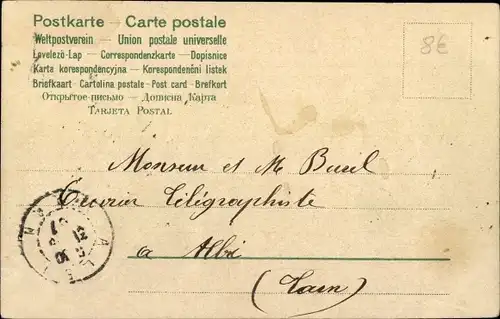 Postkarte – Carte postale
Weltpostverein – Union postale universelle
Levelező-Lap – Correspondenzkarte – Dopisnice
Karta korespondencyjna – Korespondenční listek
Briefkaart - Cartolina postale - Post card - Brefkort
Открытое-письмо – Дописна Карта
Tarjeta Postal
8€
Monsieur et M Buril
Ouvrier Télégraphiste
a Albi
(Tarn)